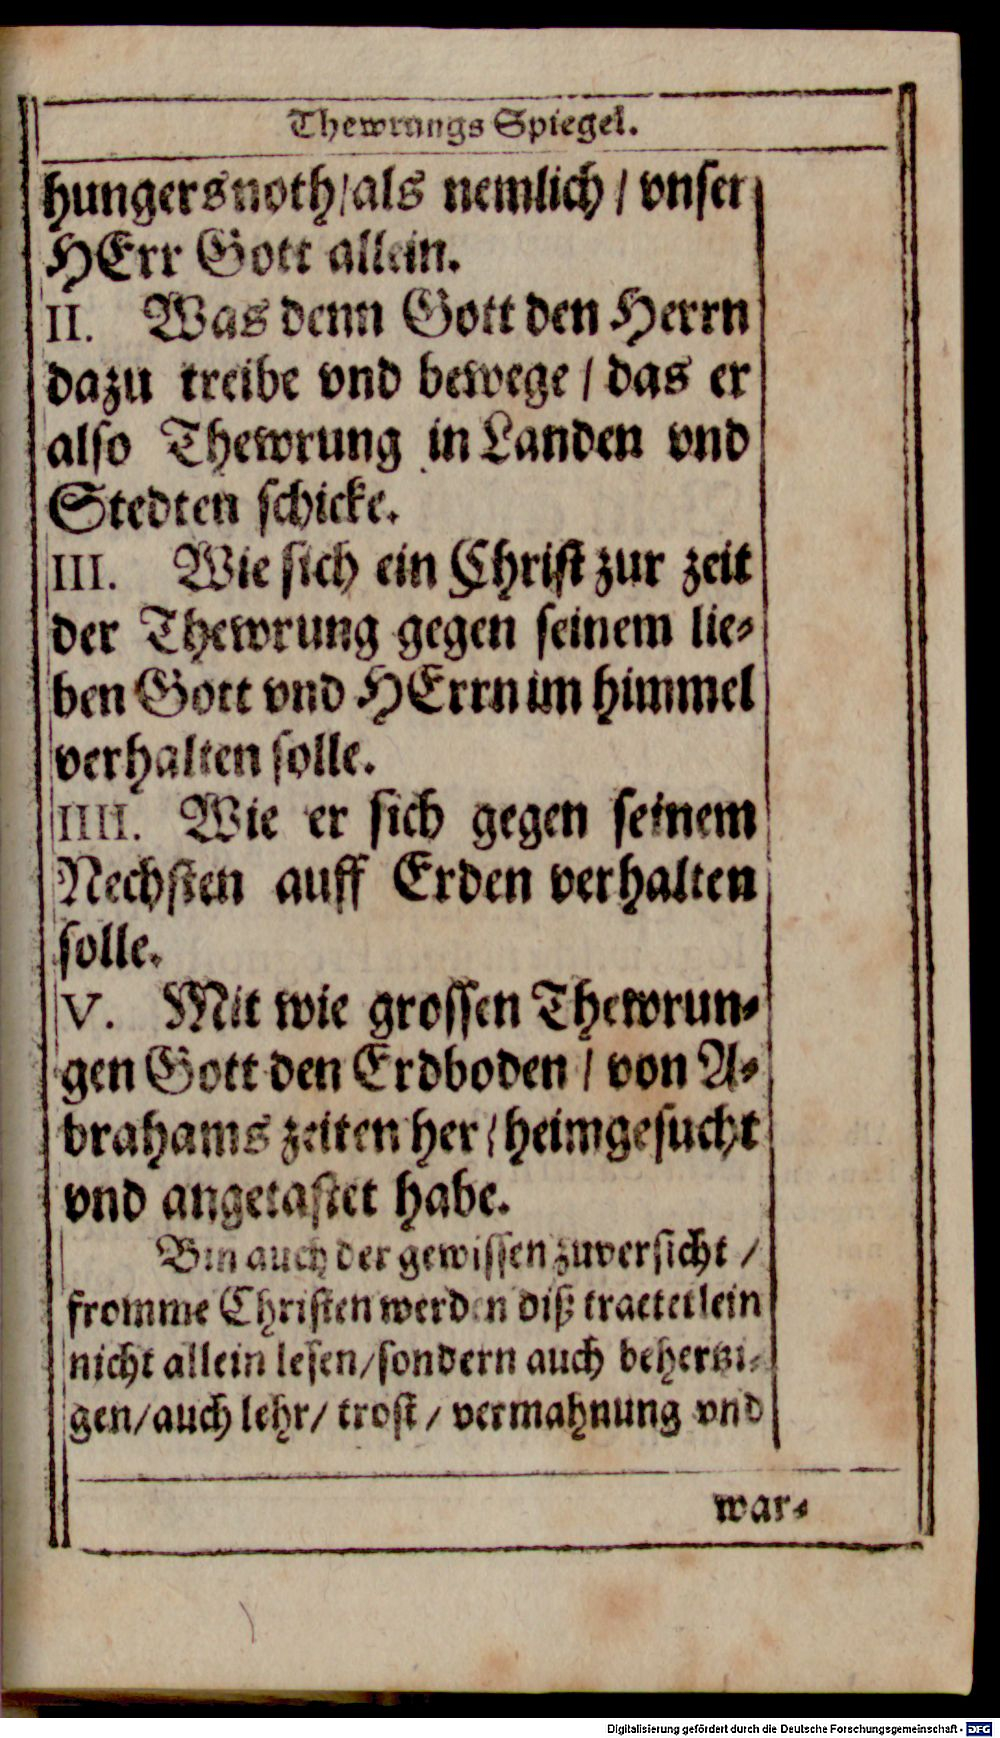 Thewrungs Spiegel.
hungersnoth/als nemlich / vnser
HErr Gott allein.
II. Was denn Gott den Herrn
dazu treibe vnd bewege / das er
also Thewrung in Landen vnd
Stedten schicke.
III. Wie sich ein Christ zur zeit
der Thewrung gegen seinem lie-
ben Gott vnd HErrn im himmel
verhalten solle.
IIII. Wie er sich gegen seinem
Nechsten auff Erden verhalten
solle.
V. Mit wie grossen Thewrun-
gen Gott den Erdboden / von A-
brahams zeiten her / heimgesucht
vnd angetastet habe.
Bin auch der gewissen zuversicht /
fromme Christen werden diß tractetlein
nicht allein lesen/sondern auch behertzi-
gen/auch lehr/ trost / vermahnung vnd
war-
Digitalisierung gefördert durch die Deutsche Forschungsgemeinschaft - DFG